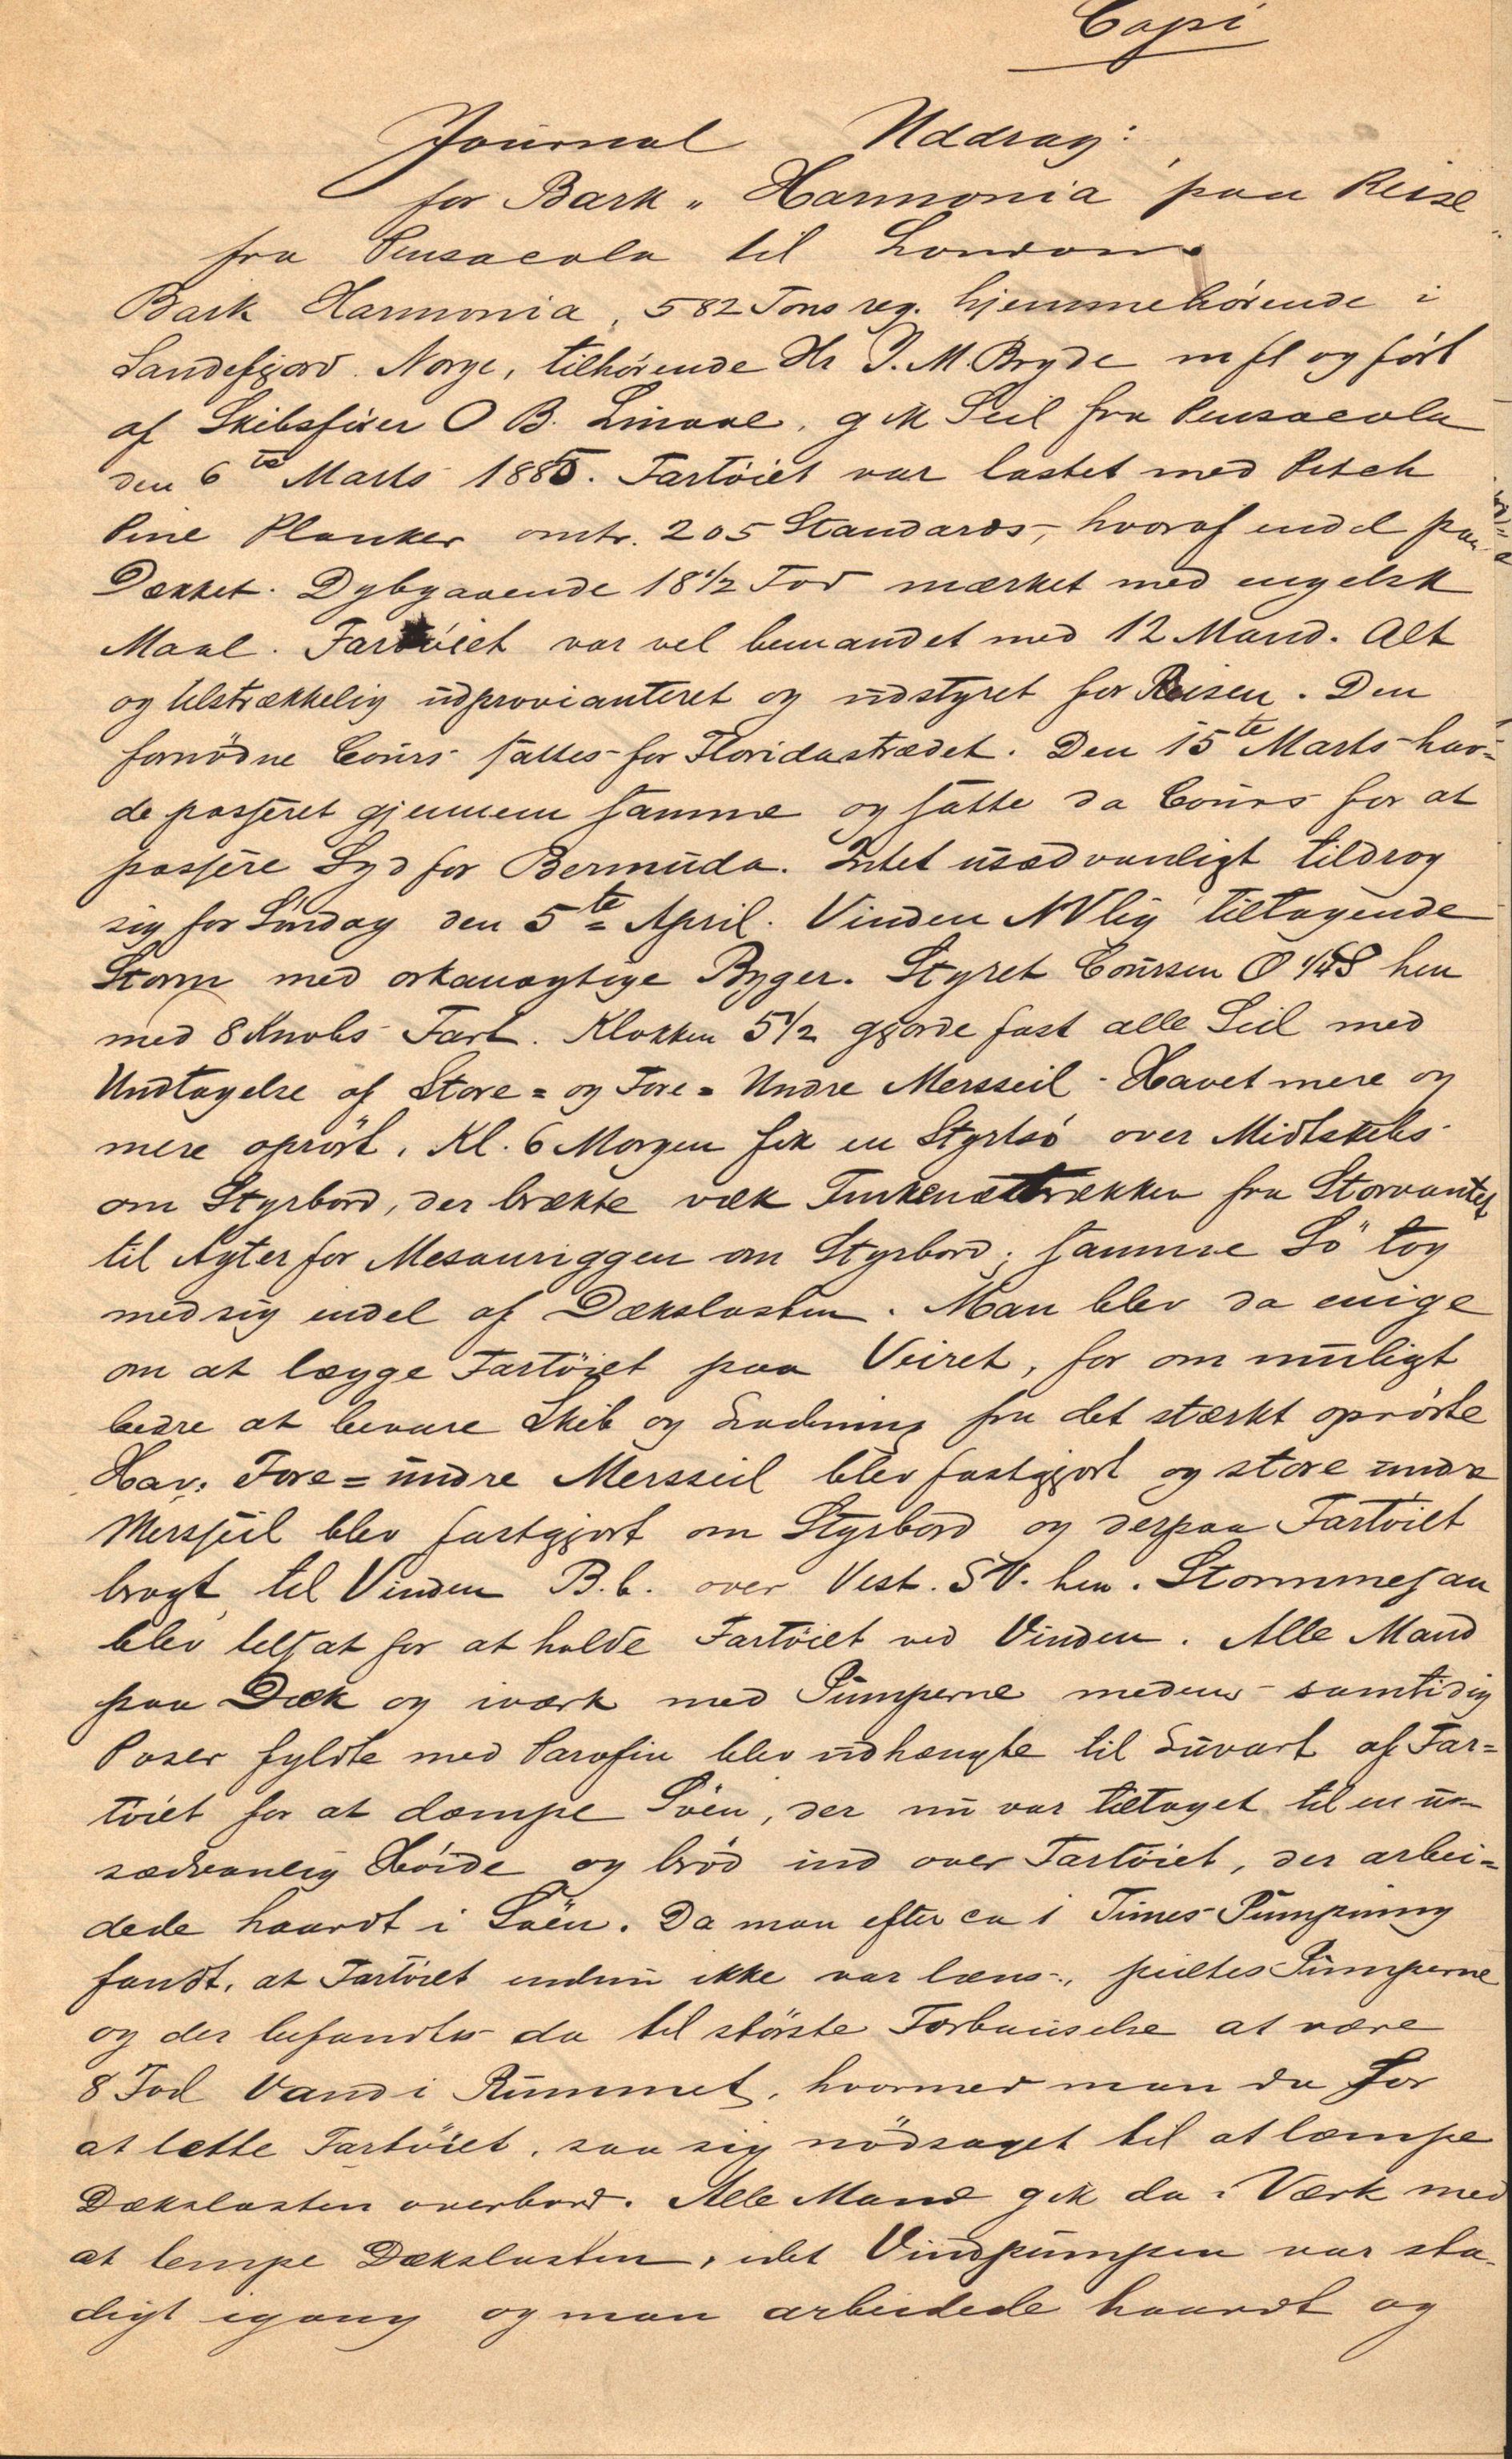 Copi
Journal Uddrag:
for Bark „Harmonia paa Reise
fra Pensacola til London.
Bark Harmonia, 582 Tons reg. hjemmehörende i
Sandefjord. Norge, tilhörende Hr J. M. Bryde m fl og fört
af Skibsförer O B. Linaae, gik Seil fra Pensacola
den 6te Marts 1885. Fartöiet var lastet med Pitch
Pine Planker omtr. 205 Standards, hvoraf endel paa
Dækket. Dybgaaende 18 1/2 Fod mærket med engelsk
Maal. Fartöiet var vel bemandet med 12 Mand. Alt
og tilstrækkelig udprovianteret og udstyret for Reisen. Den
fornödne Cours sattes for Floridastrædet. Den 15te Marts hav=
de passeret gjennem samme og satte da Cours for at
passere Syd for Bermuda. Intet usædvanligt tildrog
sig för Söndag den 5te April. Vinden NVlig tiltagende
Storm med orkanagtige Byger. Styret Coursen O 1/4 S hen
med 8 Knobs Fart. Klokken 5 1/2 gjorde fast alle Seil med
Undtagelse af Store= og Fore= Undre Mersseil. Havet mere og
mere oprört. Kl. 6 Morgen fik en Styrtsö over Midtskibs
om Styrbord, der brækte væk Finkenætrækken fra Storvantet
til Agter for Mesanriggen om Styrbord; samme Sö tog
med sig endel af Dækslasten. Man blev da enige
om at lægge Fartöiet paa Veiret, for om muligt
bedre at bevare Skib og Ladning fra det stærkt oprörte
Hav. Fore=undre Mersseil blev fastgjort og store undre
Mersseil blev fastgjort om Styrbord og derpaa Fartöiet
bragt til Vinden B.b. over Vest. SV. hen. Stormmesan
blev tilsat for at holde Fartöiet ved Vinden. Alle Mand
paa Dæk og iværk med Pumperne medens samtidig
Poser fyldte med Parafin blev udhængte til Luvart af Far=
töiet for at dæmpe Söen, der nu var tiltaget til en u=
sædvanlig Höide og bröd ind over Fartöiet, der arbei=
dede haardt i Söen. Da man efter ca 1 Times Pumpning
fandt, at Fartöiet endnu ikke var læns, peiltes Pumperne
og der befandtes da til störste Forbauselse at være
8 Fod Vand i Rummet, hvormed man da for
at lette Fartöiet, saa sig nödsaget til at læmpe
Dækslasten overbord. Alle Mand gik da i Værk med
at lempe Dækslasten, idet Vindpumpen var sta=
digt igang og man arbeidede haardt og